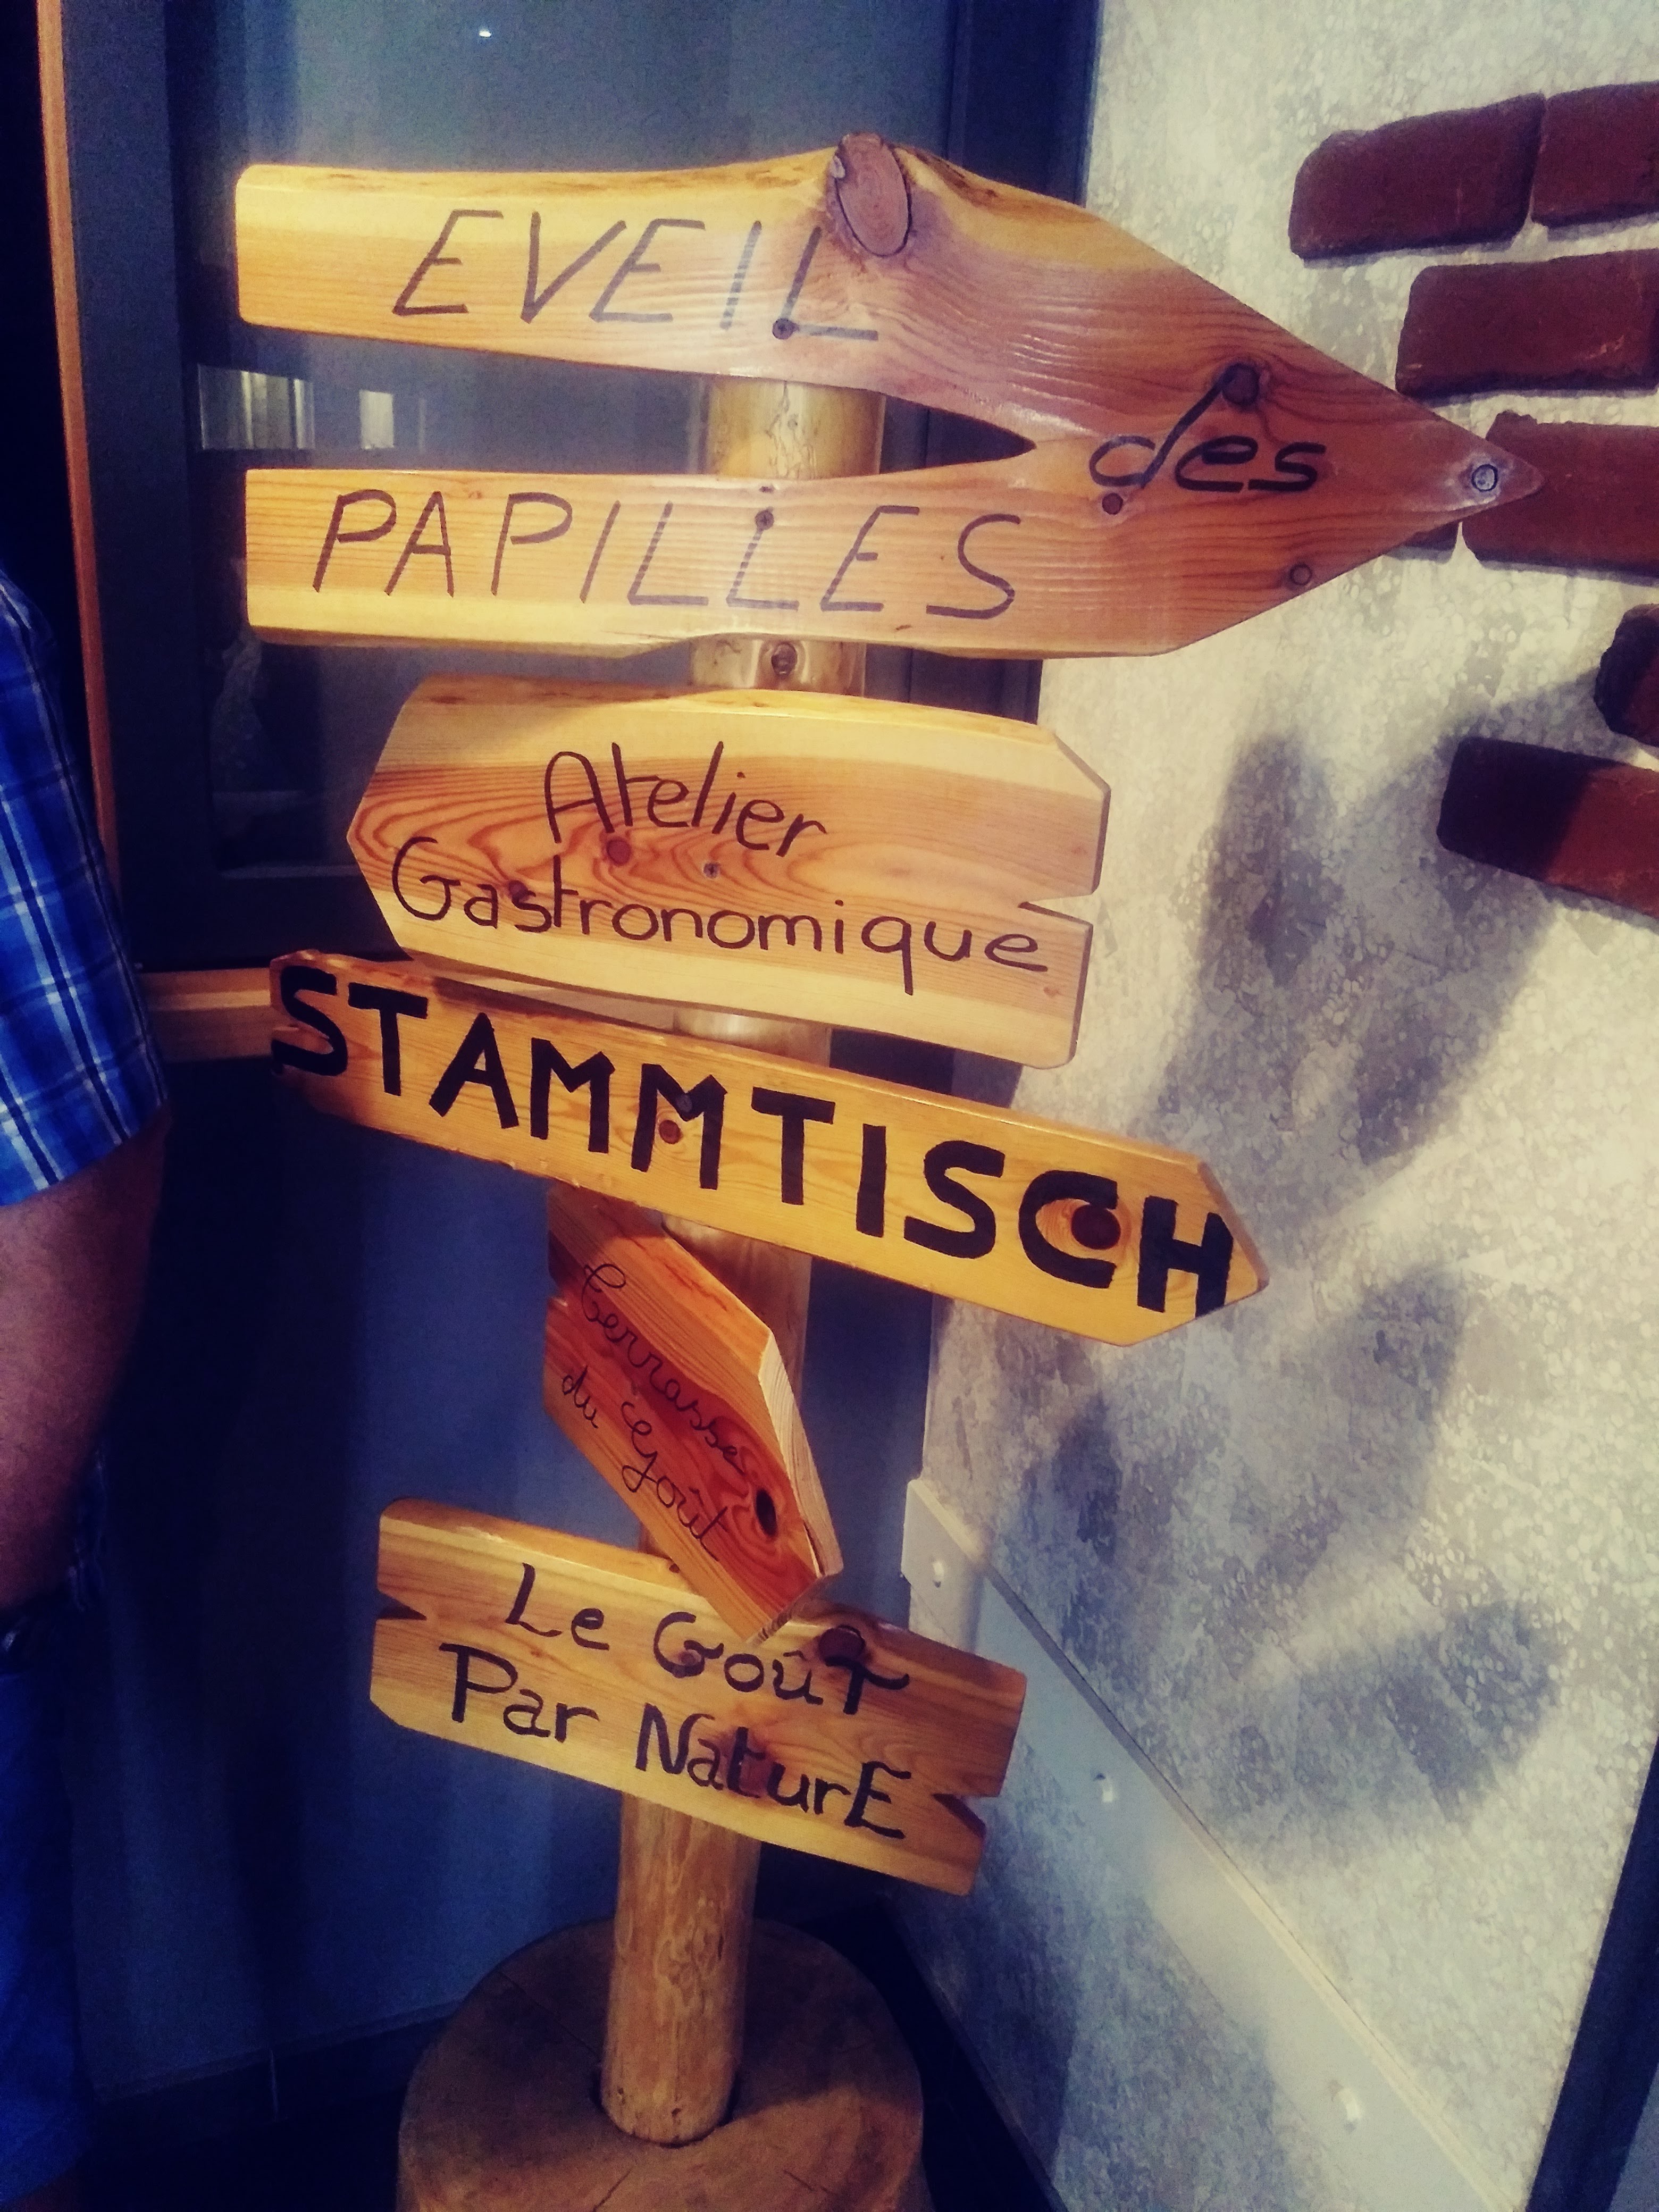 EVEIL
des
PAPILLES
Atelier
Gastronomique
STAMMTISCH
Terrasse
du Goût
Le Goût
Par NaturE